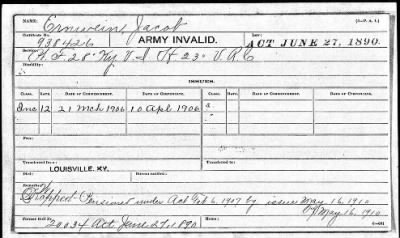 NAME: Ernwein, Jacob (3-P. A. 1.)
Certificate No. 938426 ARMY INVALID. Law: ACT JUNE 27, 1890.
Service: A. F. 28" Ky. V. I H 23" V. R. C
Disability:
INCREASE.
CLASS. RATE. DATE OF COMMENCEMENT. DATE OF CERTIFICATE. CLASS. RATE. DATE OF COMMENCEMENT. DATE OF CERTIFICATE.
Inc 12 21 Mch 1906 10 Apl 1906 a
Transferred from Transferred to
LOUISVILLE, KY.
Died: Date of notification:
Remarks:
Dropped Pensioned under Act Feb 6, 1907 by issue May 16, 1910
May 16, 1910
Former Roll No. 20034 Act June 27, 1890 Home: